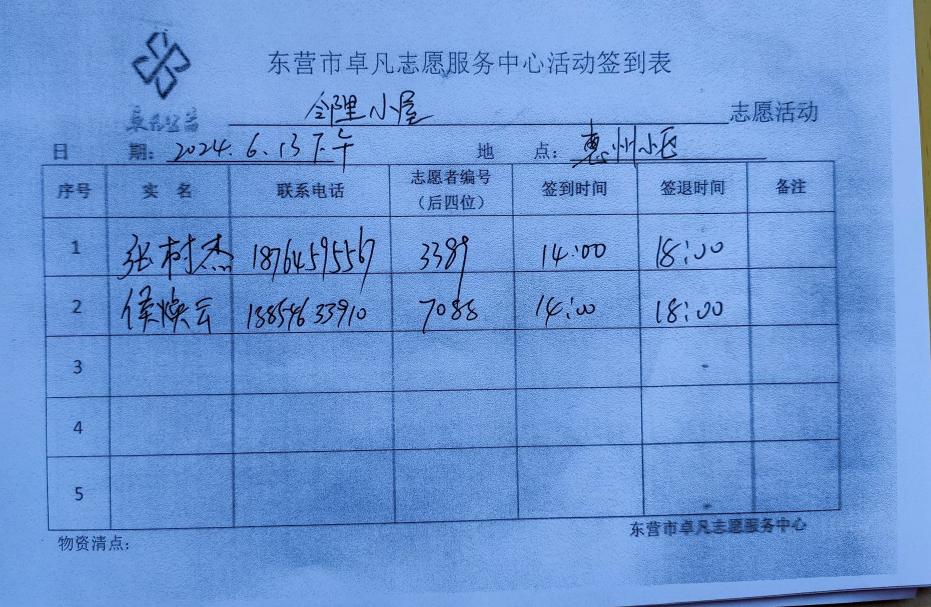 东营市卓凡志愿服务中心活动签到表
卓凡公益
邻里小屋 志愿活动
日 期: 2024.6.13下午 地 点: 惠州小区
序号 实 名 联系电话 志愿者编号（后四位） 签到时间 签退时间 备注
1 张树杰 18764595567 3389 14:00 18:00
2 侯焕云 13854633910 7088 14:00 18:00
3
4
5
东营市卓凡志愿服务中心
物资清点: